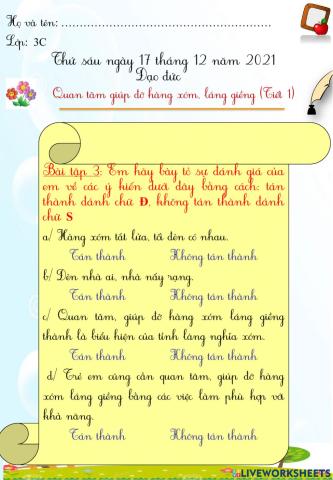 Họ và tên: ................................................
Lớp: 3C
Thứ sáu ngày 17 tháng 12 năm 2021
Đạo đức
Quan tâm giúp đỡ hàng xóm, láng giềng (Tiết 1)
Bài tập 3: Em hãy bày tỏ sự đánh giá của
em về các ý kiến dưới đây bằng cách: tán
thành đánh chữ Đ, không tán thành đánh
chữ S
a/ Hàng xóm tắt lửa, tối đèn có nhau.
Tán thành Không tán thành
b/ Đèn nhà ai, nhà nấy rạng.
Tán thành Không tán thành
c/ Quan tâm, giúp đỡ hàng xóm láng giềng
thành là biểu hiện của tình làng nghĩa xóm.
Tán thành Không tán thành
d/ Trẻ em cũng cần quan tâm, giúp đỡ hàng
xóm láng giềng bằng các việc làm phù hợp với
khả năng.
Tán thành Không tán thành
LIVEWORKSHEETS